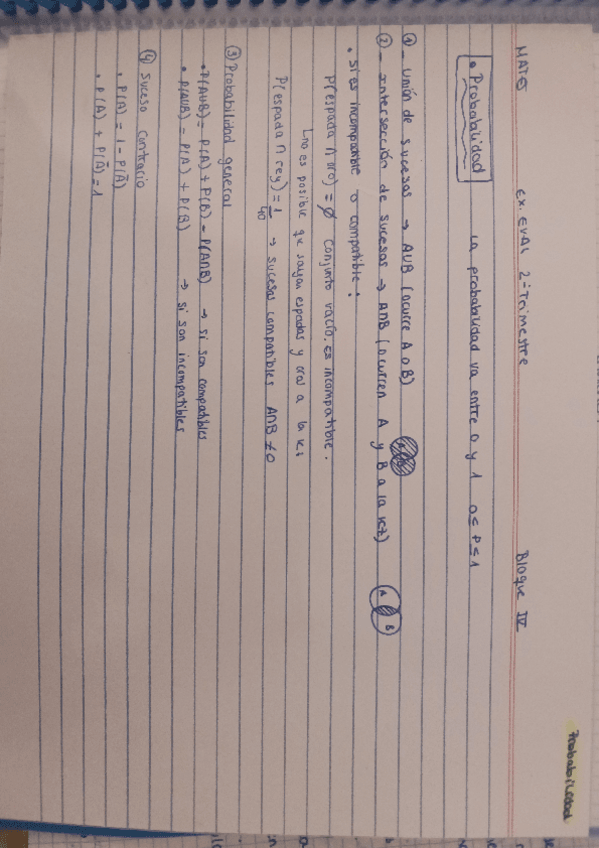 Probabilidad
MATES Ex. EVAL 2º Trimestre Bloque IV
• Probabilidad La probabilidad va entre 0 y 1 0≤P≤1
① - Unión de sucesos → AUB (ocurre A o B)
② - Intersección de sucesos → A∩B (ocurren A y B a la vez) A B
• Si es incompatible o compatible:
P(espada ∩ oro) = ∅ conjunto vacío. Es incompatible.
no es posible que salgan espadas y oros a la vez
P(espada ∩ rey) = 1/40 → sucesos compatibles A∩B ≠ 0
③ Probabilidad general
• P(AUB) = P(A) + P(B) - P(A∩B) → si son compatibles
• P(AUB) = P(A) + P(B) → si son incompatibles
④ Suceso contrario
• P(A) = 1 - P(Ā)
• P(A) + P(Ā) = 1